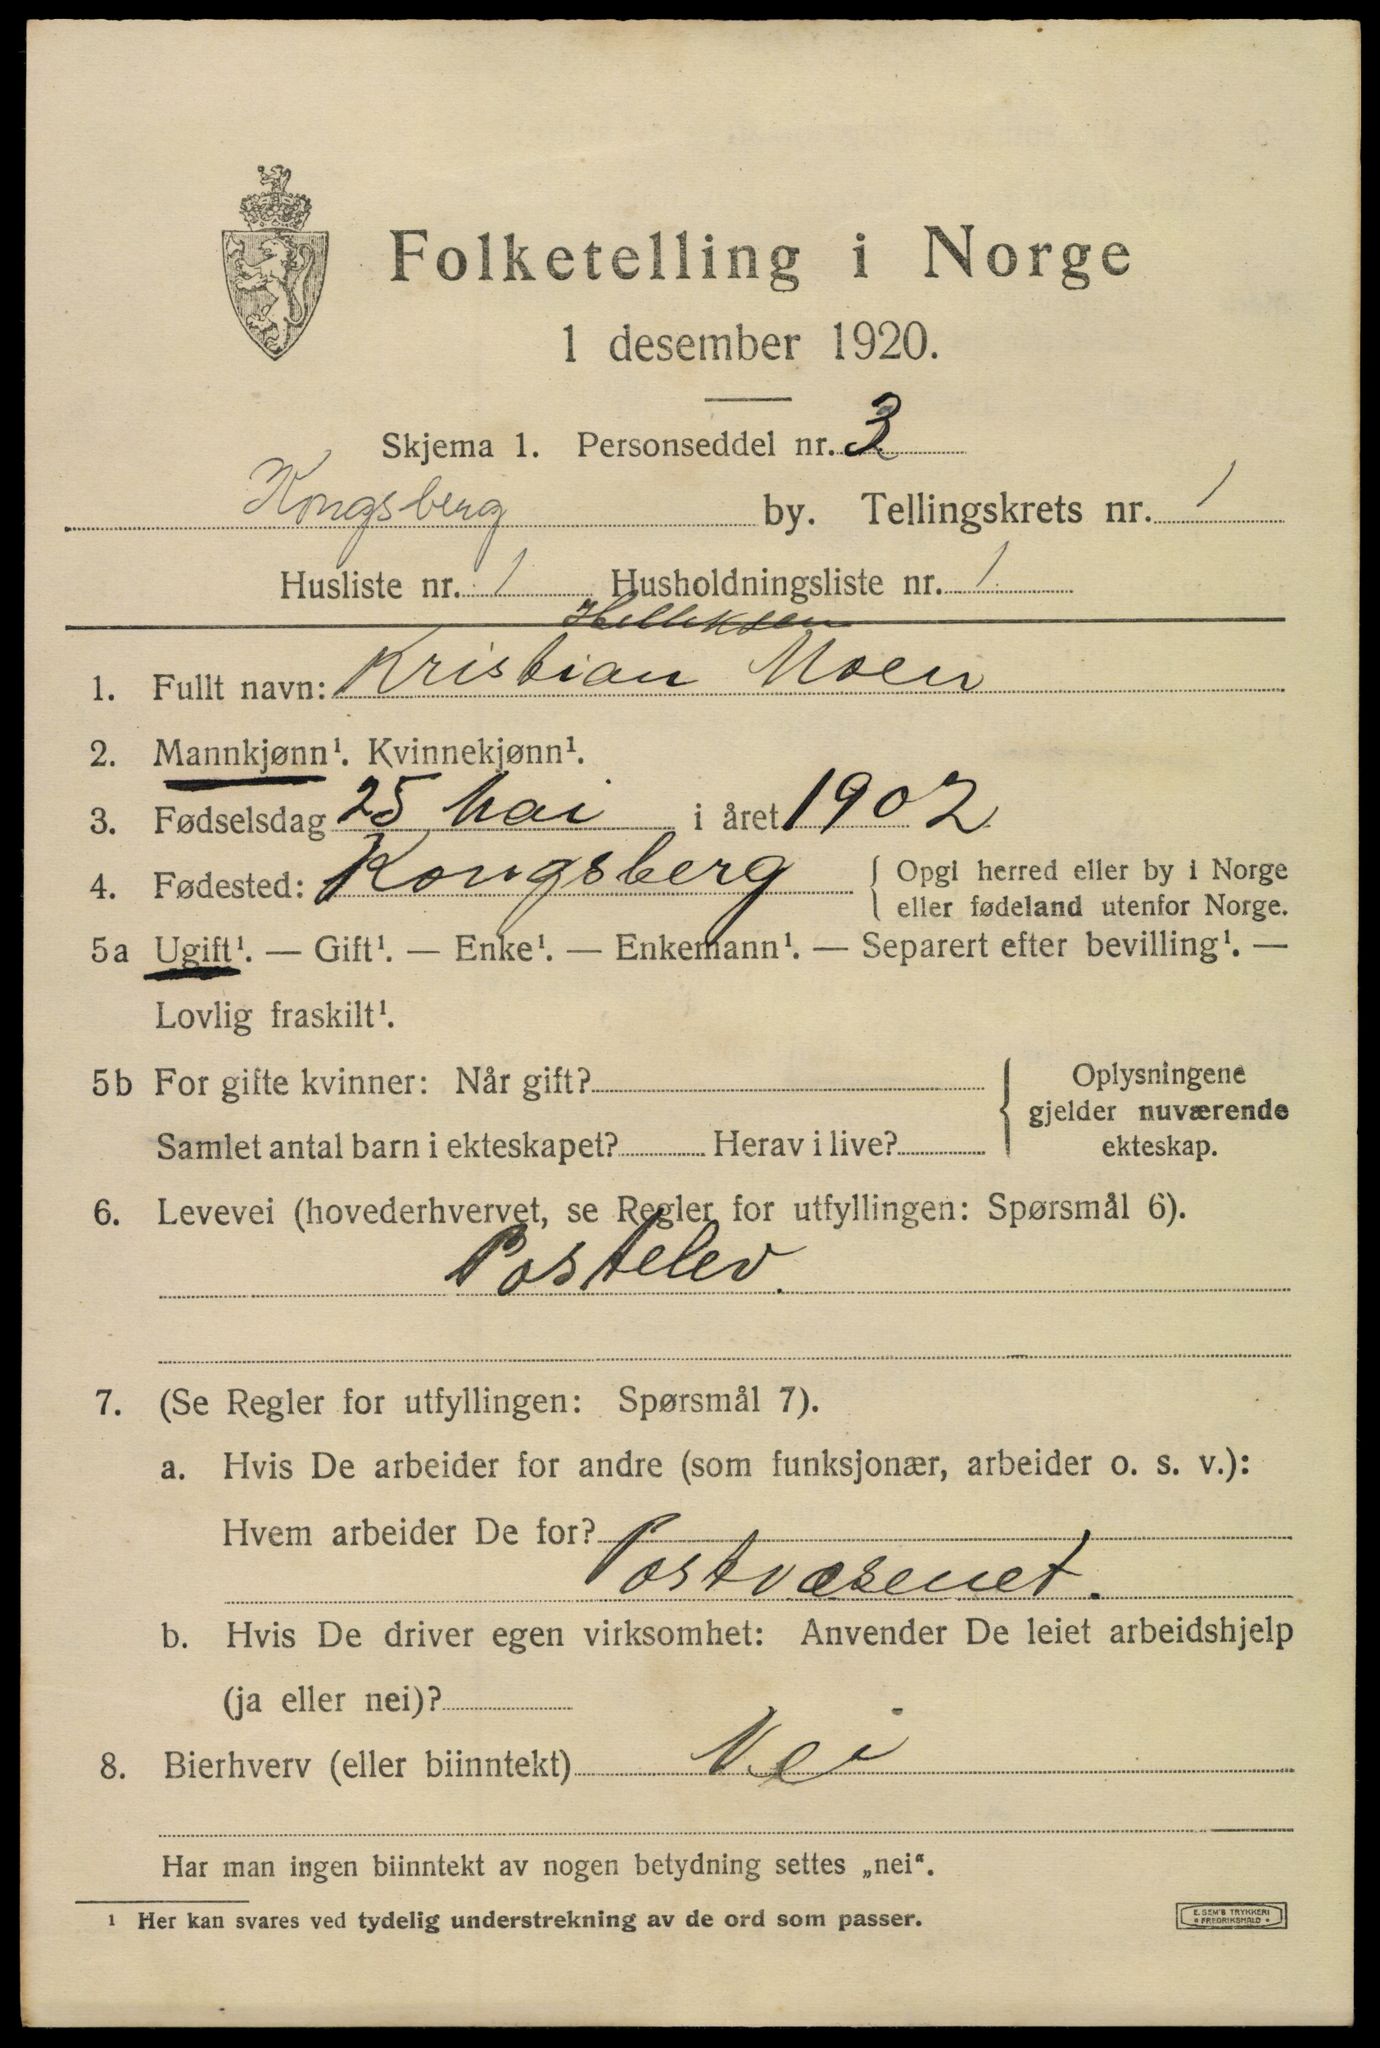 Folketelling i Norge
1 desember 1920.
Skjema 1. Personseddel nr. 3
Kongsberg by. Tellingskrets nr. 1
Husliste nr. 1 Husholdningsliste nr. 1
Helleksen
1. Fullt navn: Kristian Moen
2. Mannkjønn¹. Kvinnekjønn¹.
3. Fødselsdag 25 Mai i året 1902
4. Fødested: Kongsberg { Opgi herred eller by i Norge
eller fødeland utenfor Norge.
5a Ugift¹. — Gift¹. — Enke¹. — Enkemann¹. — Separert efter bevilling¹. —
Lovlig fraskilt¹.
5b For gifte kvinner: Når gift? { Oplysningene
gjelder nuværende
Samlet antal barn i ekteskapet? Herav i live? ekteskap.
6. Levevei (hovederhvervet, se Regler for utfyllingen: Spørsmål 6).
Postelev.
7. (Se Regler for utfyllingen: Spørsmål 7).
a. Hvis De arbeider for andre (som funksjonær, arbeider o. s. v.):
Hvem arbeider De for?
Postvæsenet.
b. Hvis De driver egen virksomhet: Anvender De leiet arbeidshjelp
(ja eller nei)?
8. Bierhverv (eller biinntekt) Nei
Har man ingen biinntekt av nogen betydning settes „nei“.
¹ Her kan svares ved tydelig understrekning av de ord som passer.
E. SEM'S TRYKKERI
* FREDRIKSHALD *